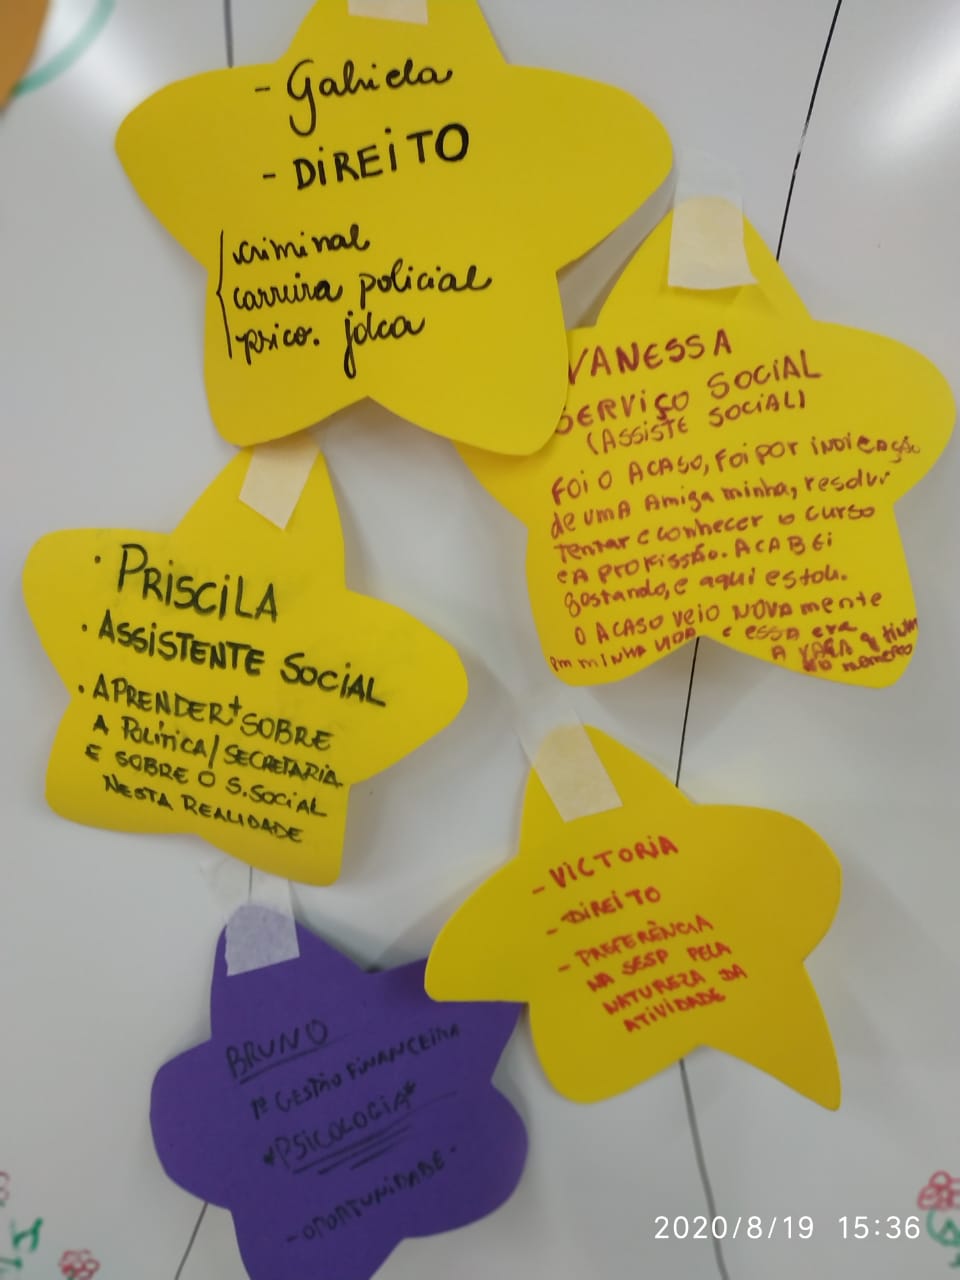 - Gabriela
- DIREITO
criminal
carreira policial
psico. jdca
VANESSA
SERVIÇO SOCIAL
(ASSISTE SOCIAL)
FOI O ACASO, FOI POR INDICAÇÃO
de UMA Amiga minha, resolvi
Tentar e conhecer o curso
e A PROFISSÃO. ACABEI
gostando, e aqui estou.
O ACASO veio NOVAmente
em minha VIDA e essa era
A VAGA q tinha
no momento
· PRISCILA
· ASSISTENTE SOCIAL
· APRENDER + SOBRE
A POLÍTICA/SECRETARIA
E SOBRE O S.SOCIAL
NESTA REALIDADE
- VICTORIA
- DIREITO
- PREFERÊNCIA
NA SESP PELA
NATUREZA DA
ATIVIDADE
BRUNO
1º GESTÃO FINANCEIRA
*PSICOLOGIA*
- OPORTUNIDADE -
2020/8/19 15:36